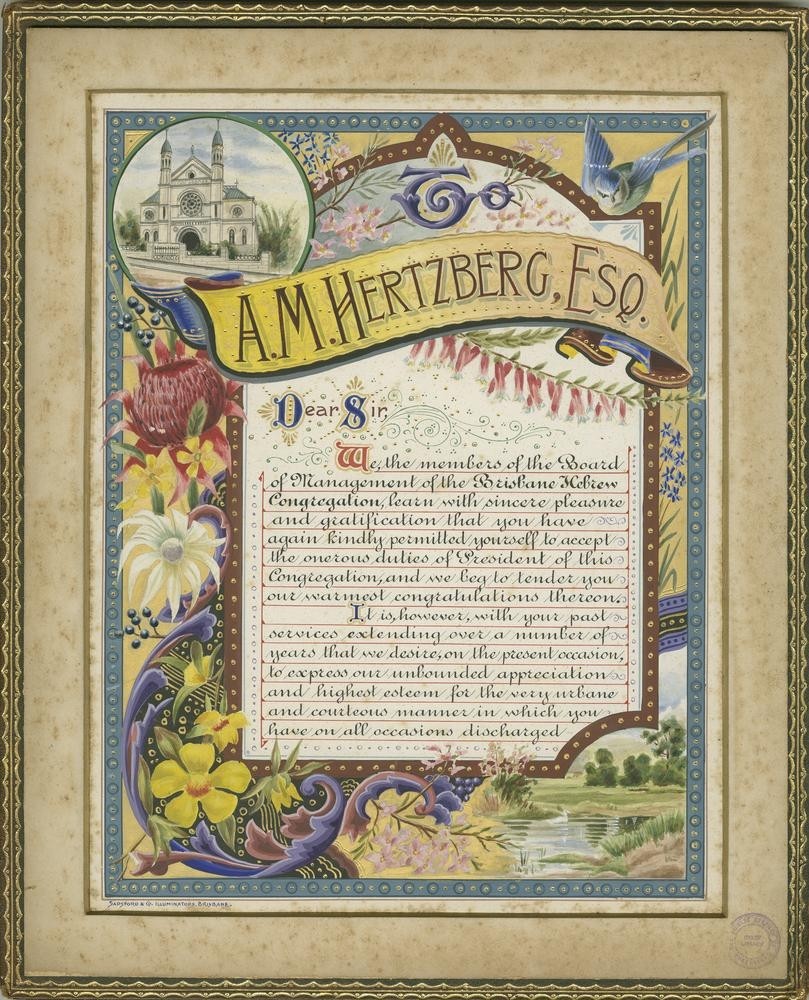 To
A. M. HERTZBERG, ESQ.
Dear Sir,
We, the members of the Board
of Management of the Brisbane Hebrew
Congregation, learn with sincere pleasure
and gratification that you have
again kindly permitted yourself to accept
the onerous duties of President of this
Congregation, and we beg to tender you
our warmest congratulations thereon.
It is, however, with your past
services extending over a number of
years that we desire, on the present occasion,
to express our unbounded appreciation
and highest esteem for the very urbane
and courteous manner in which you
have on all occasions discharged
SAPSFORD & CO. ILLUMINATORS, BRISBANE.